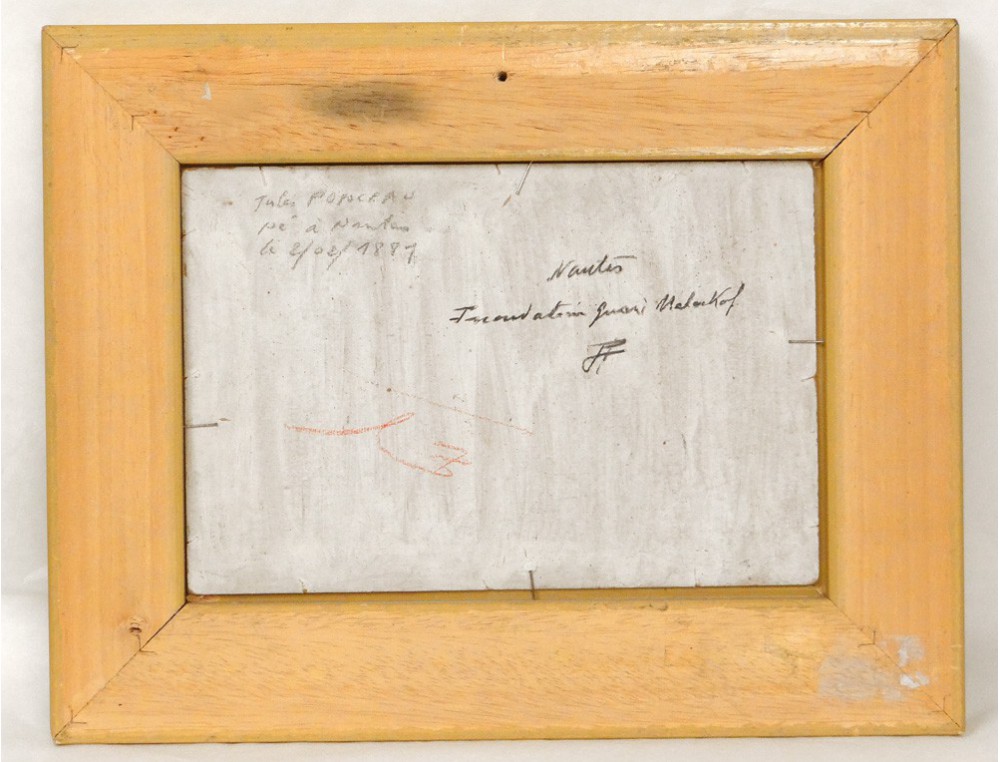 Jules PONCEAU
né à Nantes
le 2/02/1881
Nantes
Inondation Quai Malakof